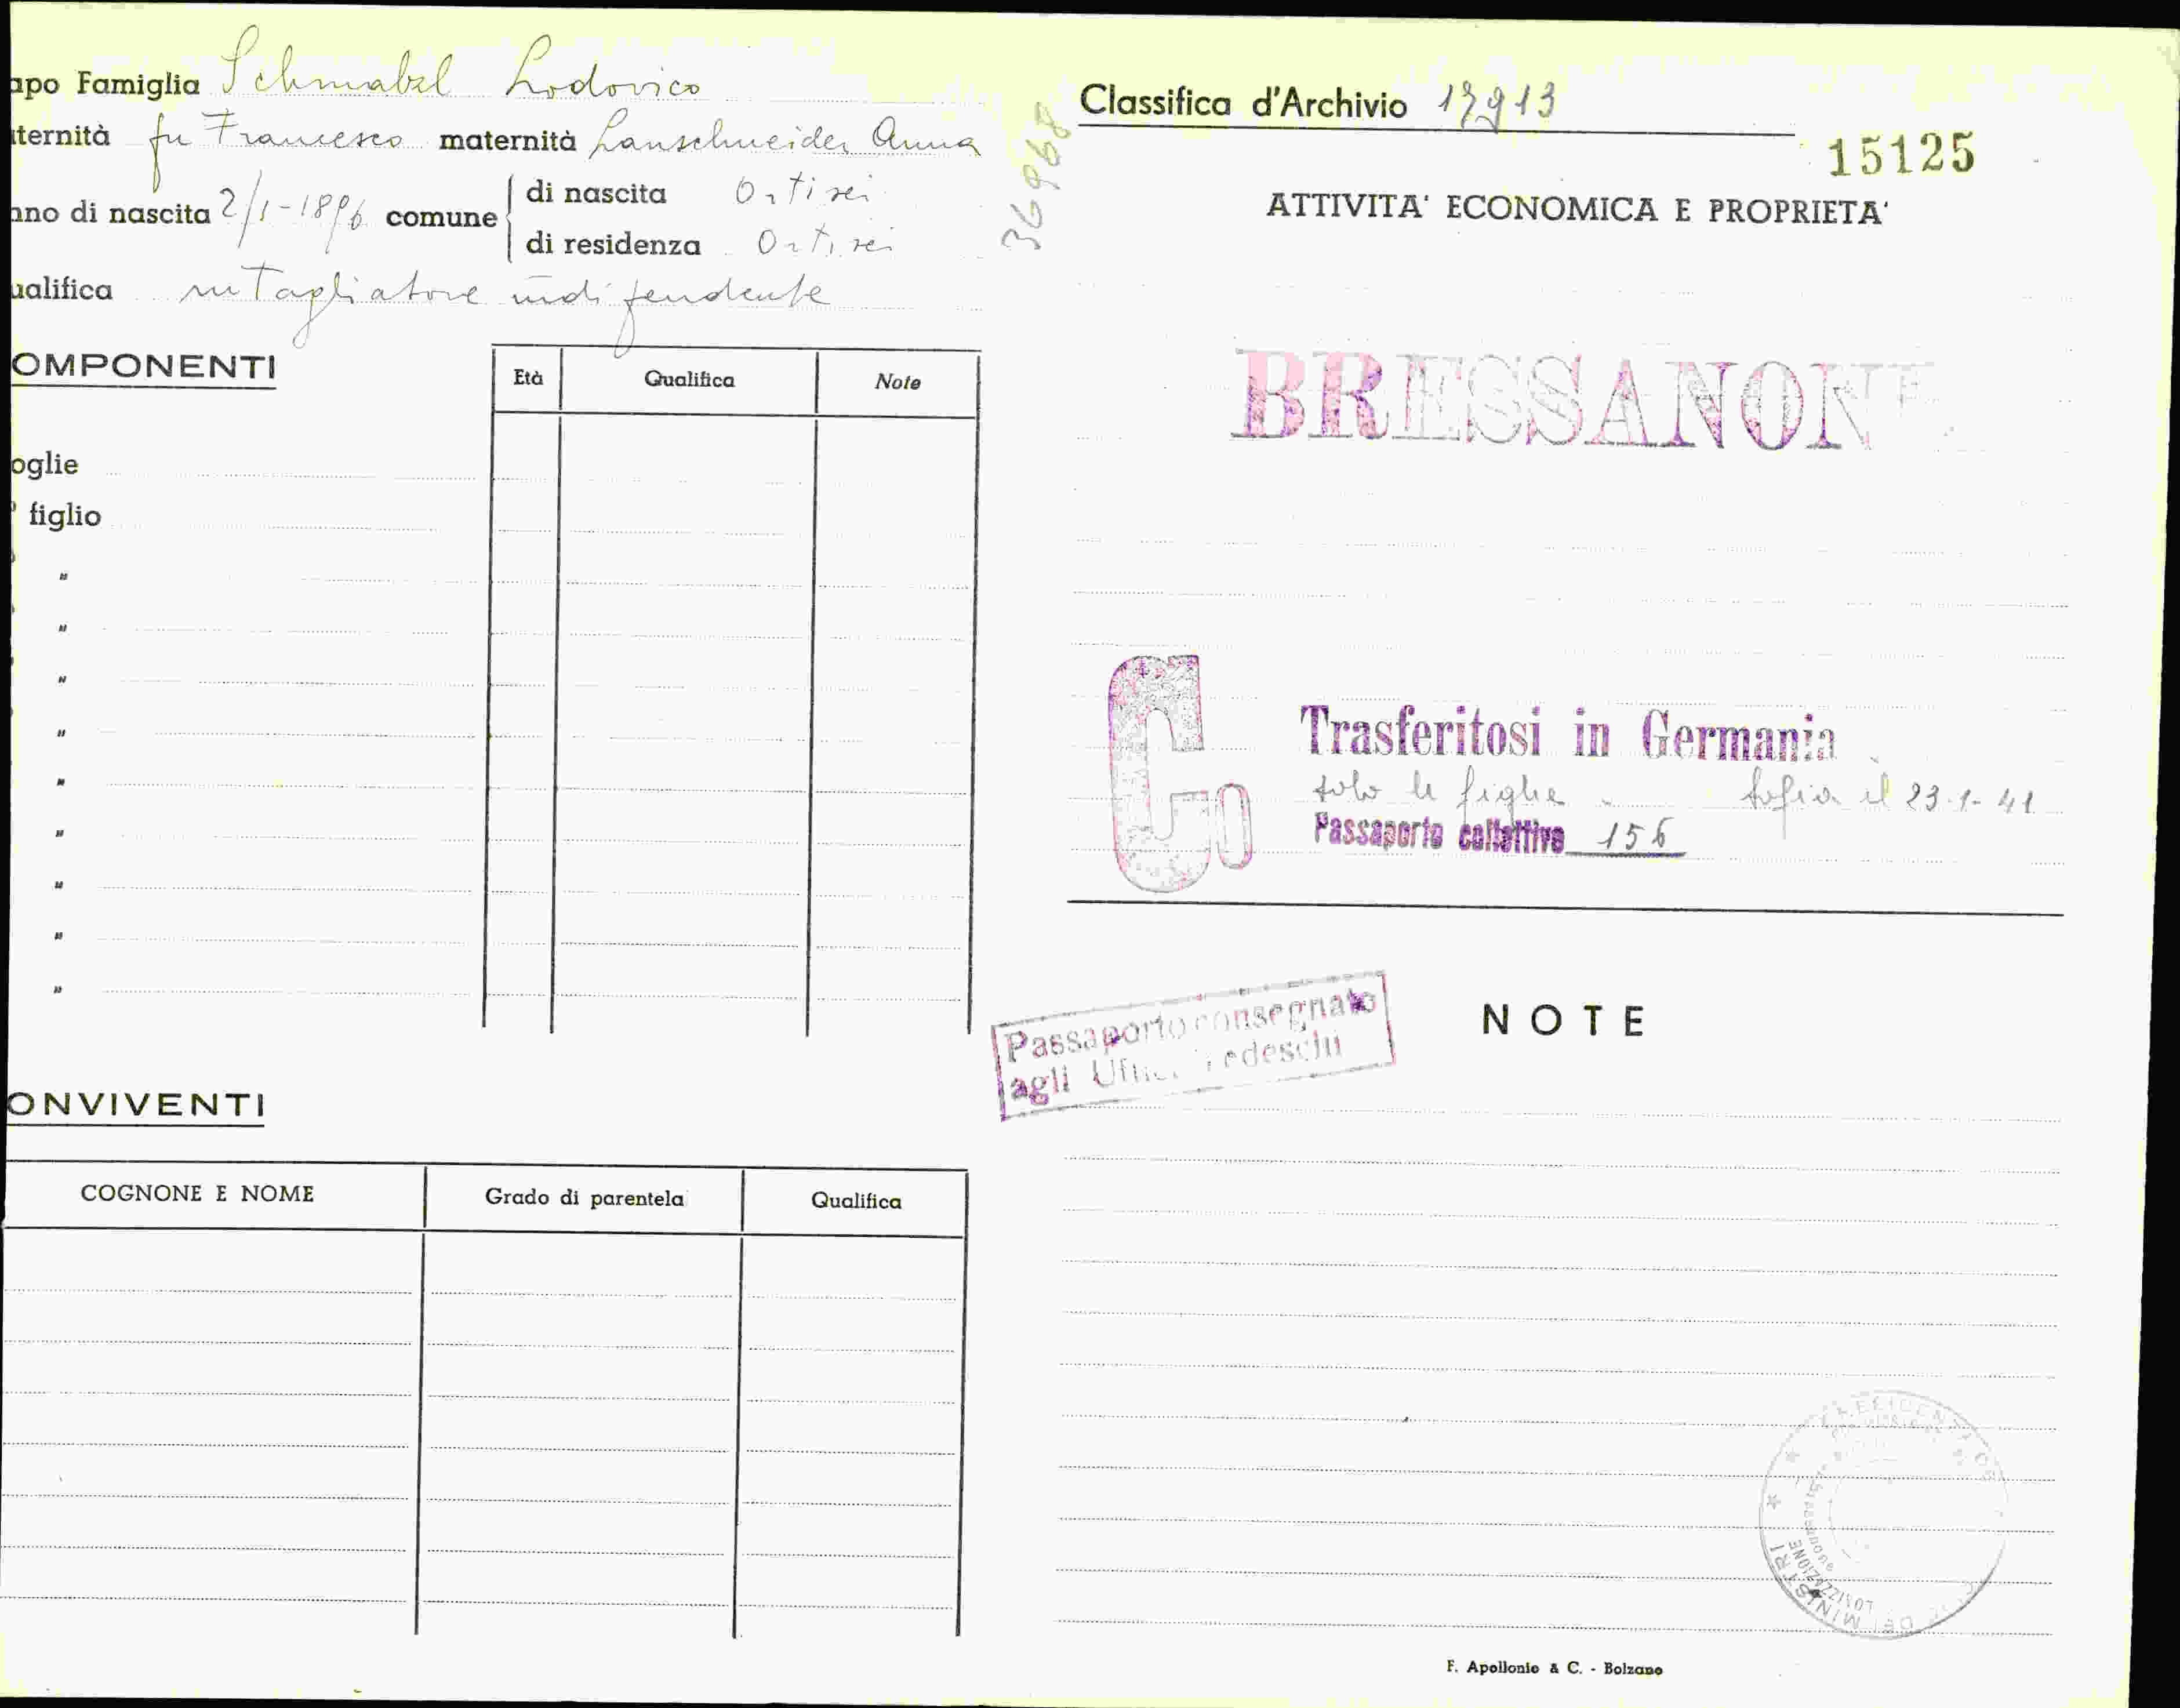 apo Famiglia Schmabel Lodovico
ternità fu Francesco maternità Lanschneider Anna
nno di nascita 2/1-1896 comune di nascita Ortisei
di residenza Ortisei
ualifica intagliatore indipendente
OMPONENTI
Età Qualifica Note
oglie
° figlio
"
"
"
"
"
"
"
"
"
ONVIVENTI
COGNONE E NOME Grado di parentela Qualifica
36968
Classifica d'Archivio 17913
15125
ATTIVITA' ECONOMICA E PROPRIETA'
BRESSANONE
Co
Trasferitosi in Germania
solo le figlie Sofia il 23-1-41
Passaporto collettivo 156
Passaporto consegnato
agli Uffici Tedeschi
NOTE
F. Apollonio & C. - Bolzano